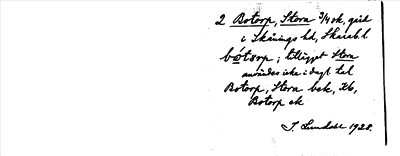 2 Botorp, Stora 3/4 sk, gård
i Skånings hd, Skarab. l
botorp; tillägget Stora
användes icke i dagl. tal
Botorp, Stora bek, Kb,
Botorp ek
J. Lundahl 1928.